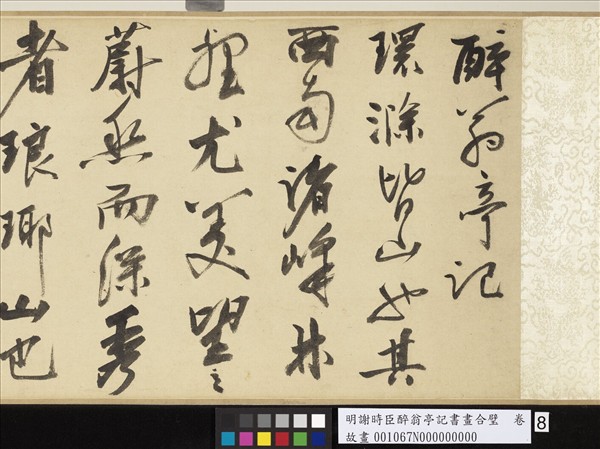 醉翁亭記
環滁皆山也其
西南諸峰林
壑尤美望之
蔚然而深秀
者琅琊山也
明謝時臣醉翁亭記書畫合璧 卷
故畫001067N000000000
8